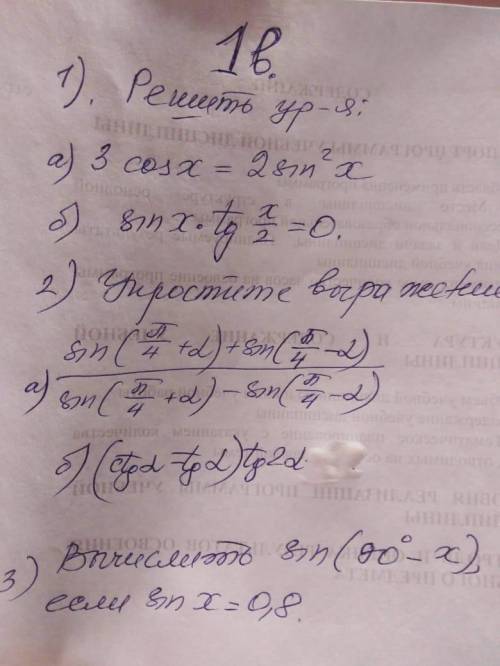 1в.
1). Решить ур-я:
а) 3 cosx = 2sin² x
б) sinx · tg x/2 = 0.
2) Упростите выражение
а) sin(π/4 + α) + sin(π/4 - α) / sin(π/4 + α) - sin(π/4 - α)
б) (ctgα - tgα) tg2α
3) Вычислить sin(90° - x),
если sin x = 0,8.